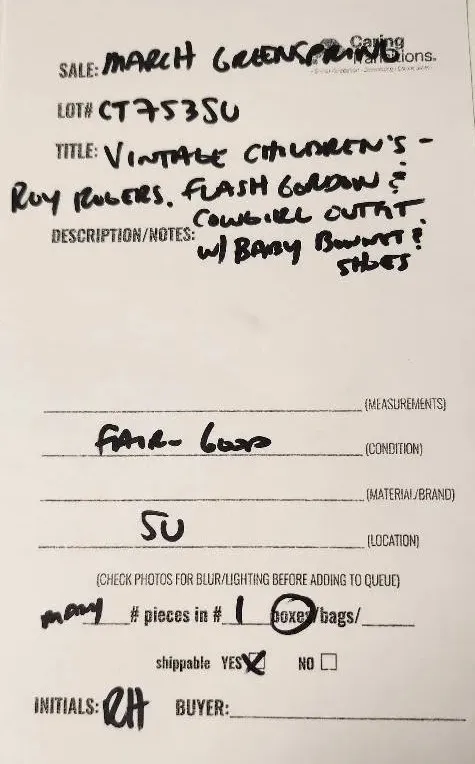 Caring
Transitions.
SALE: MARCH GREENSPRING
LOT# CT7535U
TITLE: VINTAGE CHILDREN'S -
ROY ROGERS. FLASH GORDON &
COWGIRL OUTFIT.
DESCRIPTION/NOTES: W/ BABY BONNET &
SHOES
(MEASUREMENTS)
FAIR - GOOD (CONDITION)
(MATERIAL/BRAND)
5U (LOCATION)
(CHECK PHOTOS FOR BLUR/LIGHTING BEFORE ADDING TO QUEUE)
many # pieces in # 1 boxes/bags/
shippable YES NO
INITIALS: RH BUYER: